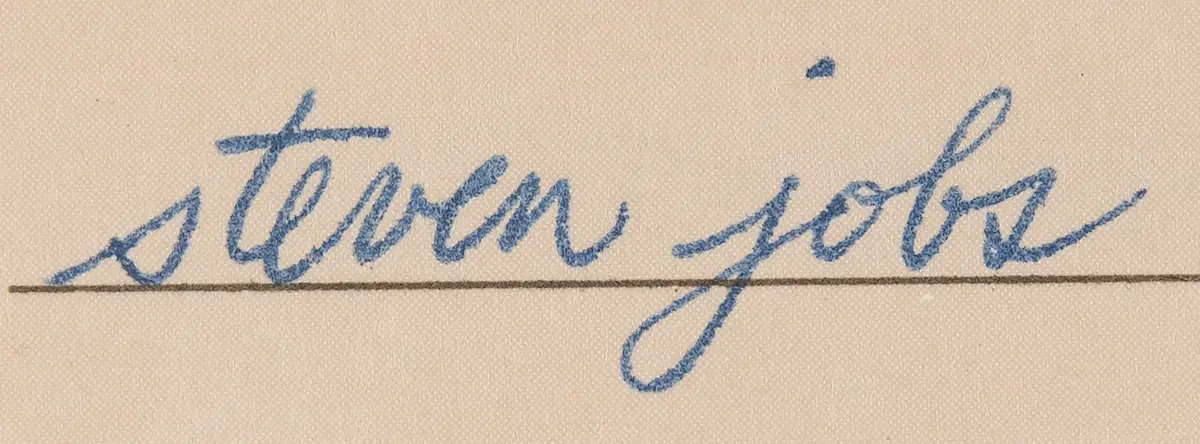 steven jobs